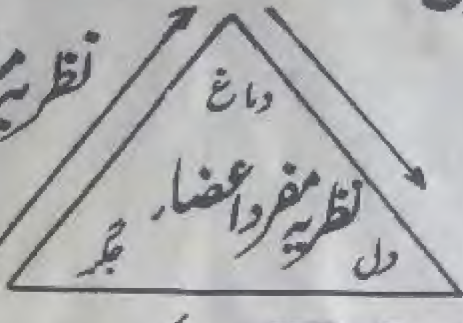 نظریہ
دماغ
نظریہ مفرد اعضاء
جگر
دل